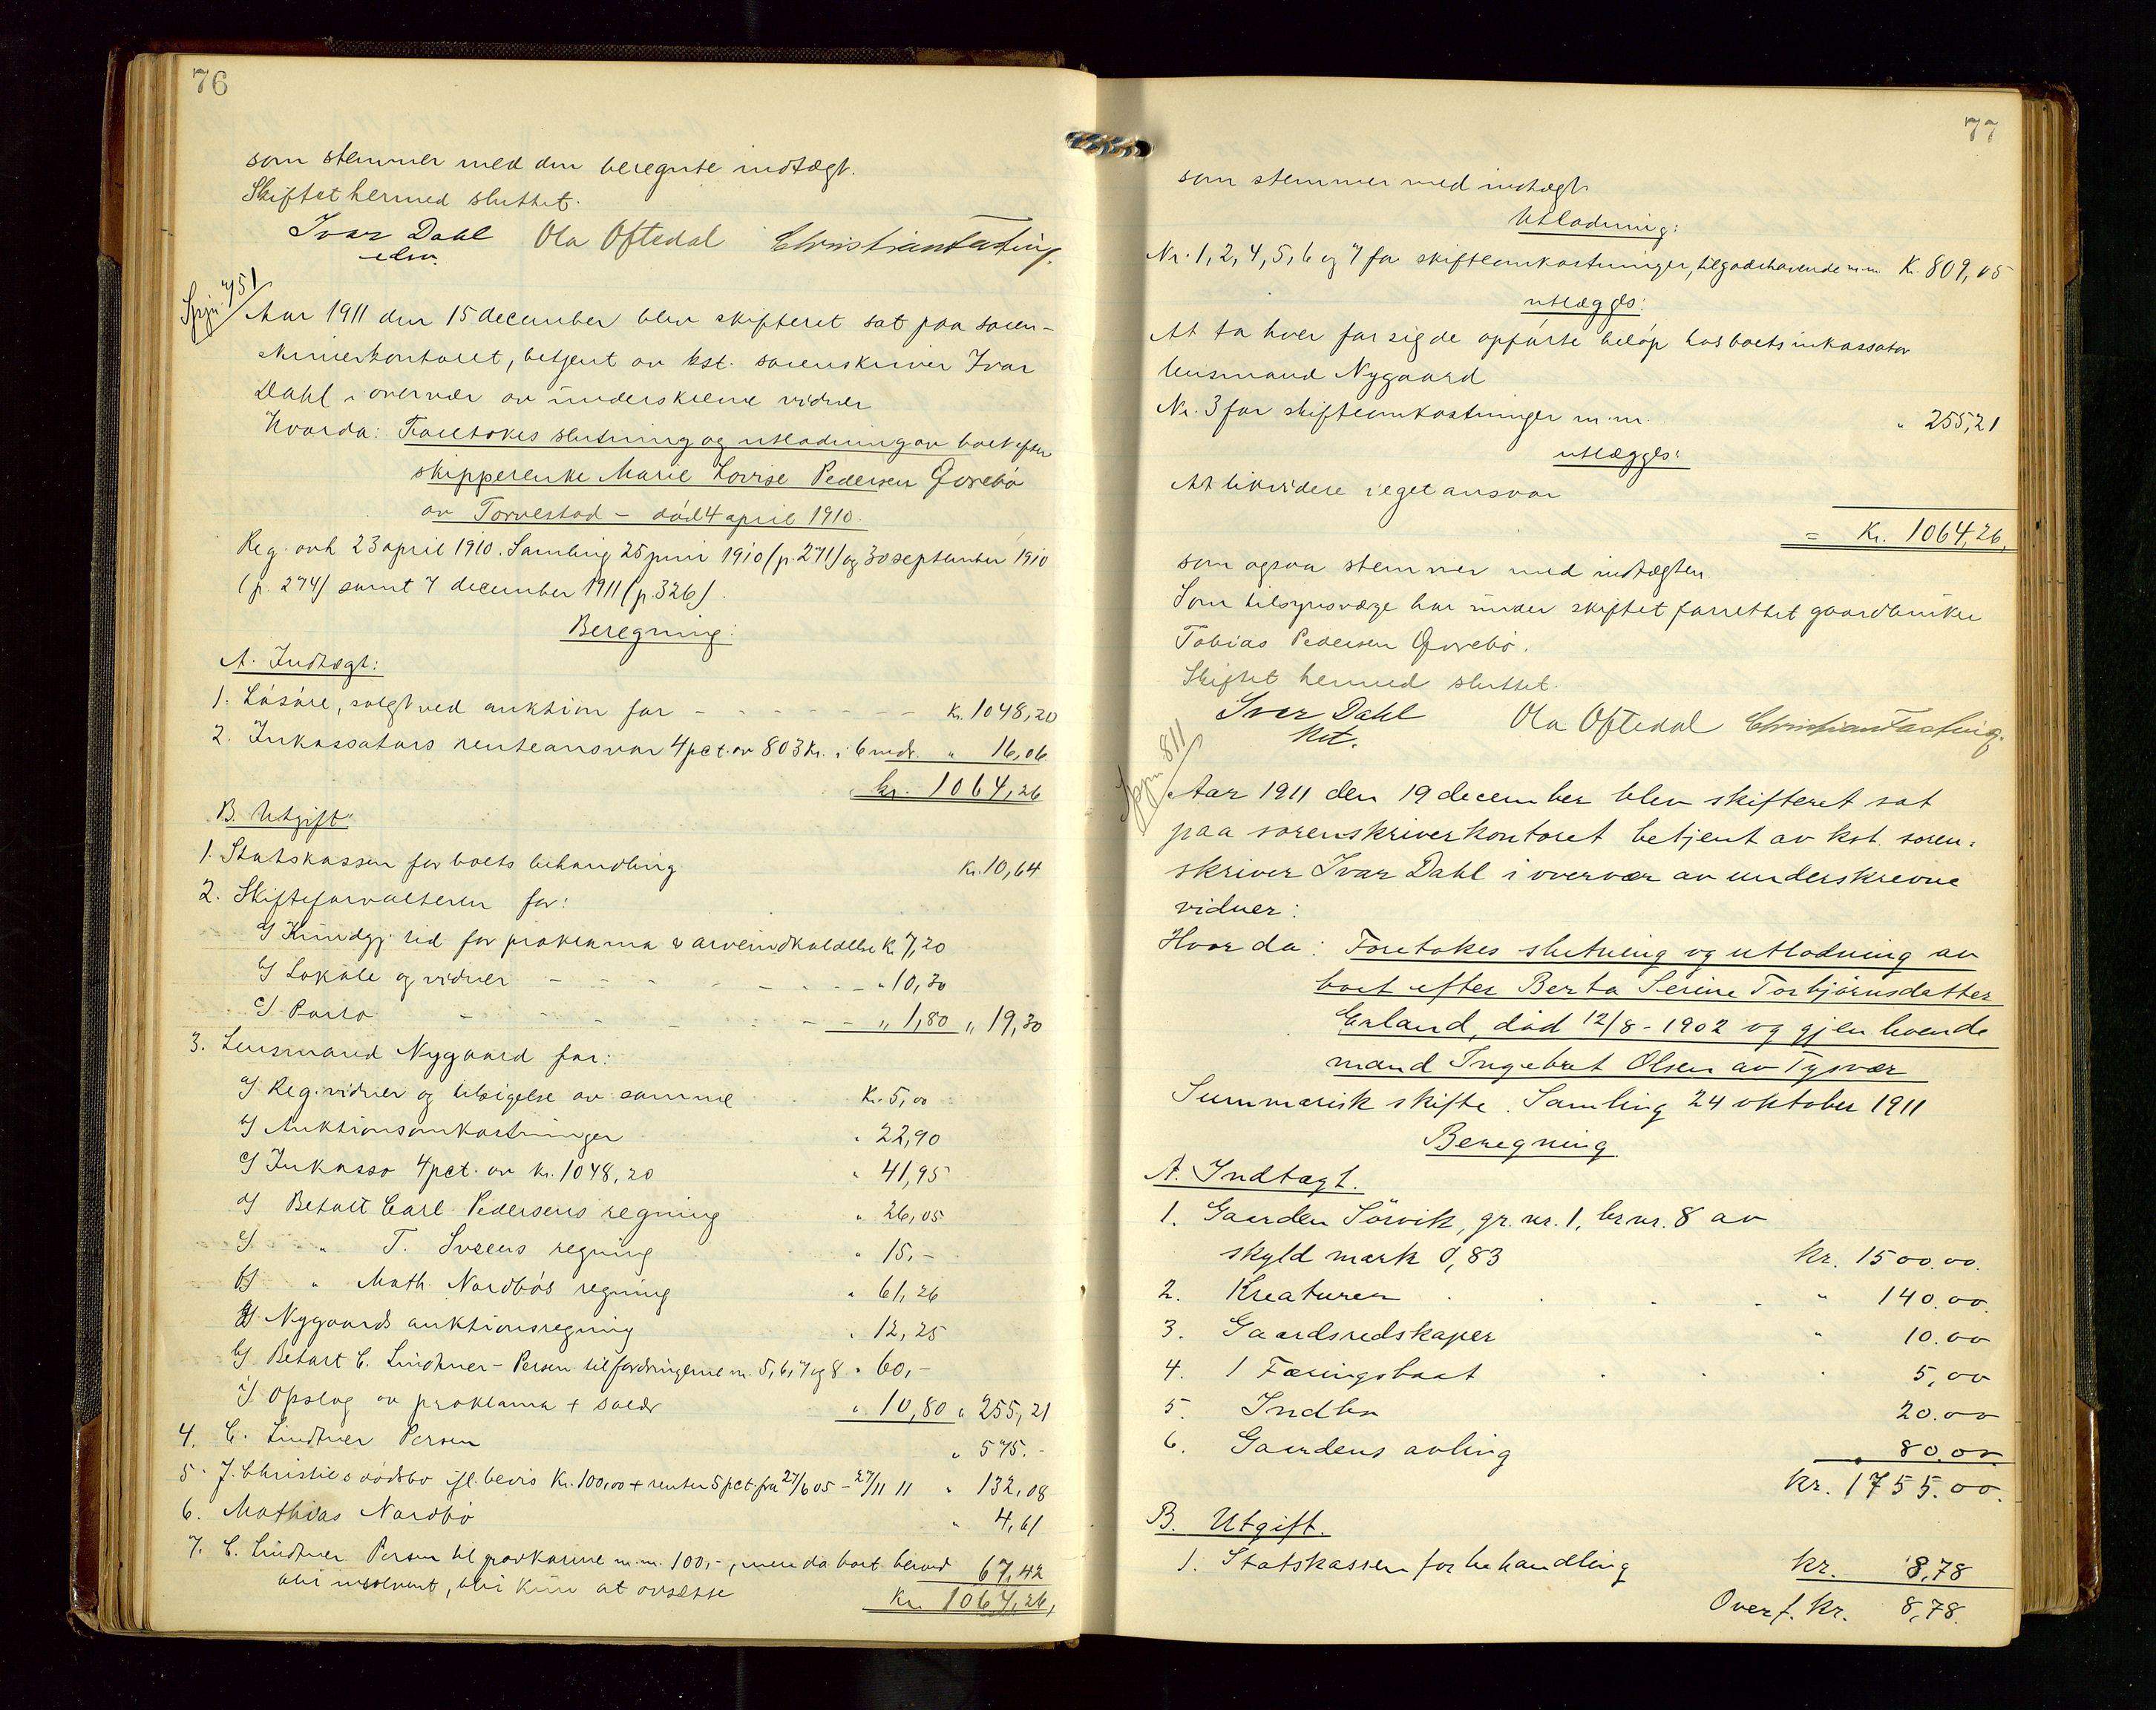 76
som stemmer med den beregnte indtægt.
Skiftet hermed sluttet.
Ivar Dahl Ola Oftedal Christian Fasting.
edsv.
751
Aar 1911 den 15 december blev skifteret sat paa soren-
skriverkontoret, betjent av kst. sorenskriver Ivar
Dahl i overvær av underskrevne vidner
Hvorda: Foretokes slutning og utlodning av boet efter
skipperenke Marie Lovise Pedersen Gjorebö
av Torvestad – död 4 april 1910.
Reg. avh. 23 april 1910. Samling 25 juni 1910 (p. 271) og 30 september 1910
(p. 274) samt 7 december 1911 (p. 326).
Beregning:
A. Indtægt:
1. Lösöre, solgt ved auktion for - - - - - - Kr. 1048,20
2. Inkassators renteansvar 4 pct. av 803 Kr. i 6 mdr. " 16,06
Kr. 1064,26
B. Utgift
1. Statskassen for boets behandling Kr. 10,64
2. Skifteforvalteren for:
a) Kundgj. tid for proklama & arveindkaldelse K. 7,20
b) Lokale og vidner - - - - - - " 10,30
c) Porto - - - - - - " 1,80 " 19,30
3. Lensmand Nygaard for:
a) Reg. vidner og tilsigelse av samme Kr. 5,00
b) Auktionsomkostninger " 22,90
c) Inkasso 4 pct. av kr. 1048,20 " 41,95
d) Betalt Carl Pedersens regning " 26,05
e) " T. Sveens regning " 15,-
f) " Math. Nordbös regning " 61,26
g) Nygaards auktionsregning " 12,25
h) Betalt C. Lindtner-Persen til fordringerne nr. 5,6,7 og 8 " 60,-
i) Opslag av proklama + " 10,80 " 255,21
4. C. Lindtner Persen " 575.-
5. J. Christies dödsbo ifl. bevis Kr. 100,00 + renter 5 pct. fra 27/6 05 – 27/11 11 " 132,08
6. Mathias Nordbö " 4,61
7. C. Lindtner Persen til gravkarme m.m. 100,-, men da boet herved 67,42
blir insolvent, blir kun at avsætte
Kr. 1064,26,
77
som stemmer med indtægt
Utlodning:
Nr. 1, 2, 4, 5, 6 og 7 for skifteomkostninger, tilgodehavende m.m. K. 809,05
utlægges:
At ta hver for sig de opförte belöp hos boets inkassator
lensmand Nygaard
Nr. 3 for skifteomkostninger m.m. " 255,21
utlægges:
At likvidere i eget ansvar
= Kr. 1064,26,
som ogsaa stemmer med indtægten.
Som tilsynsværge har under skiftet forrettet gaardbruker
Tobias Pedersen Gjorebö.
Skiftet hermed sluttet.
Ivar Dahl Ola Oftedal Christian Fasting.
Kst.
811
Aar 1911 den 19 december blev skifteret sat
paa sorenskriverkontoret betjent av kst. soren-
skriver Ivar Dahl i overvær av underskrevne
vidner:
Hvor da: Foretokes slutning og utlodning av
boet efter Berta Serine Torbjörnsdatter
Erland, död 12/8 - 1902 og gjenlevende
mand Ingebret Olsen av Tysvær
Summarisk skifte. Samling 24 oktober 1911
Beregning
A. Indtægt.
1. Gaarden Sörvik, gr. nr. 1, br. nr. 8 av
skyld mark 0,83 kr. 1500.00.
2. Kreaturer " 140.00.
3. Gaardsredskaper " 10.00
4. 1 Færingsbaat 5,00
5. Indbo 20.00
6. Gaardens avling 80.00.
Kr. 1755.00.
B. Utgift.
1. Statskassen for behandling kr. 8,78
Overf. kr. 8,78.